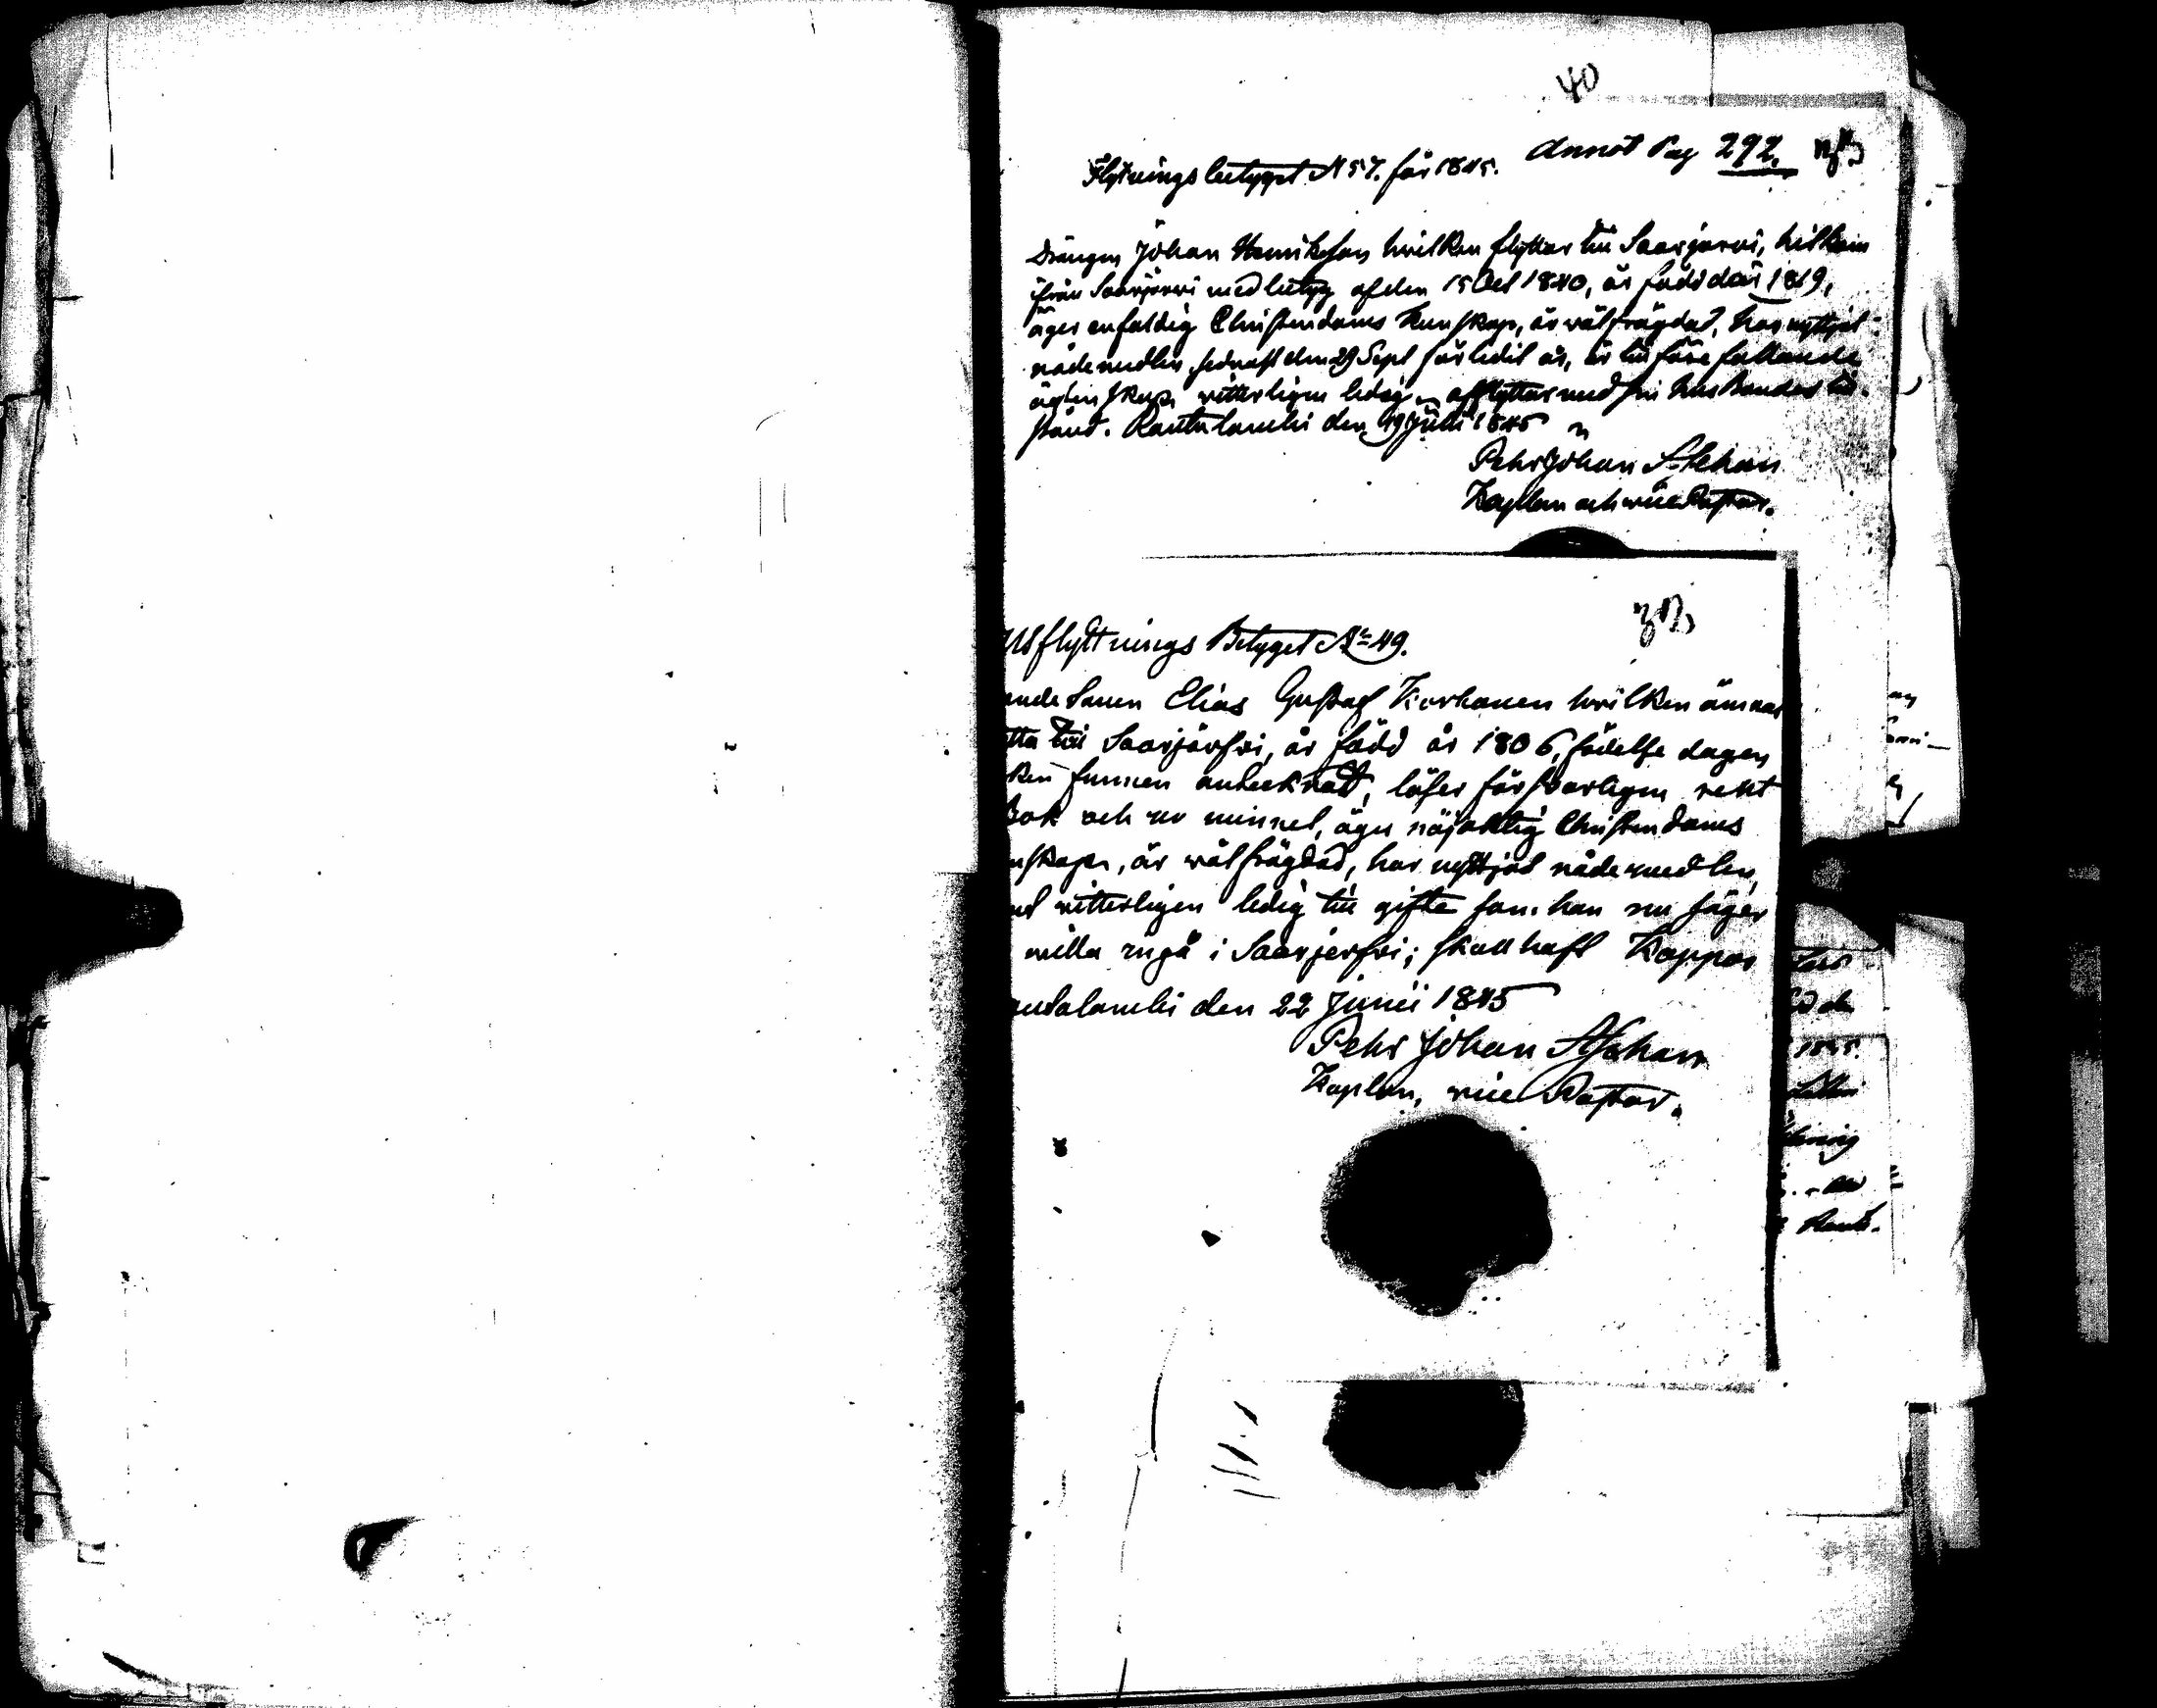 40
Annot Pag 292.
Flytnings betyget N 57. för 1845.
Drängen Johan Henriksson hvilken flyttar till Saarjärvi, hitkom
ifrån Saarjärvi med betyg af den 15 Oct 1840, är född där 1819,
äger enfaldig Christendoms kunskap, är välfrägdad, har nyttjat
nådemedlen sednast den 29 Sept förledit år, är till före fallande
ägtenskap vitterligen ledig, afflyttar med sin husbondes till-
stånd. Rautalambi den 19 Julii 1845
Pehr Johan
Kaplan och vice Pastor.
Utflyttnings Betyget No 49.
nde Sonen Elias Gustaf Korhonen hvilken ämnar
tta till Saarjärfvi, är född år 1806, födelse dagen
ken funnen antecknad, läser försvarligen rent
Bok och ur minnet, äger nöjaktig Christendoms
nskap, är välfrägdad, har nyttjat nådemedlen,
vitterligen ledig till gifte som han nu säger
villa ingå i Saarjerfvi; skall haft Koppor
autalambi den 22 Junii 1845
Pehr Johan
Kaplan, vice Pastor.
1845.